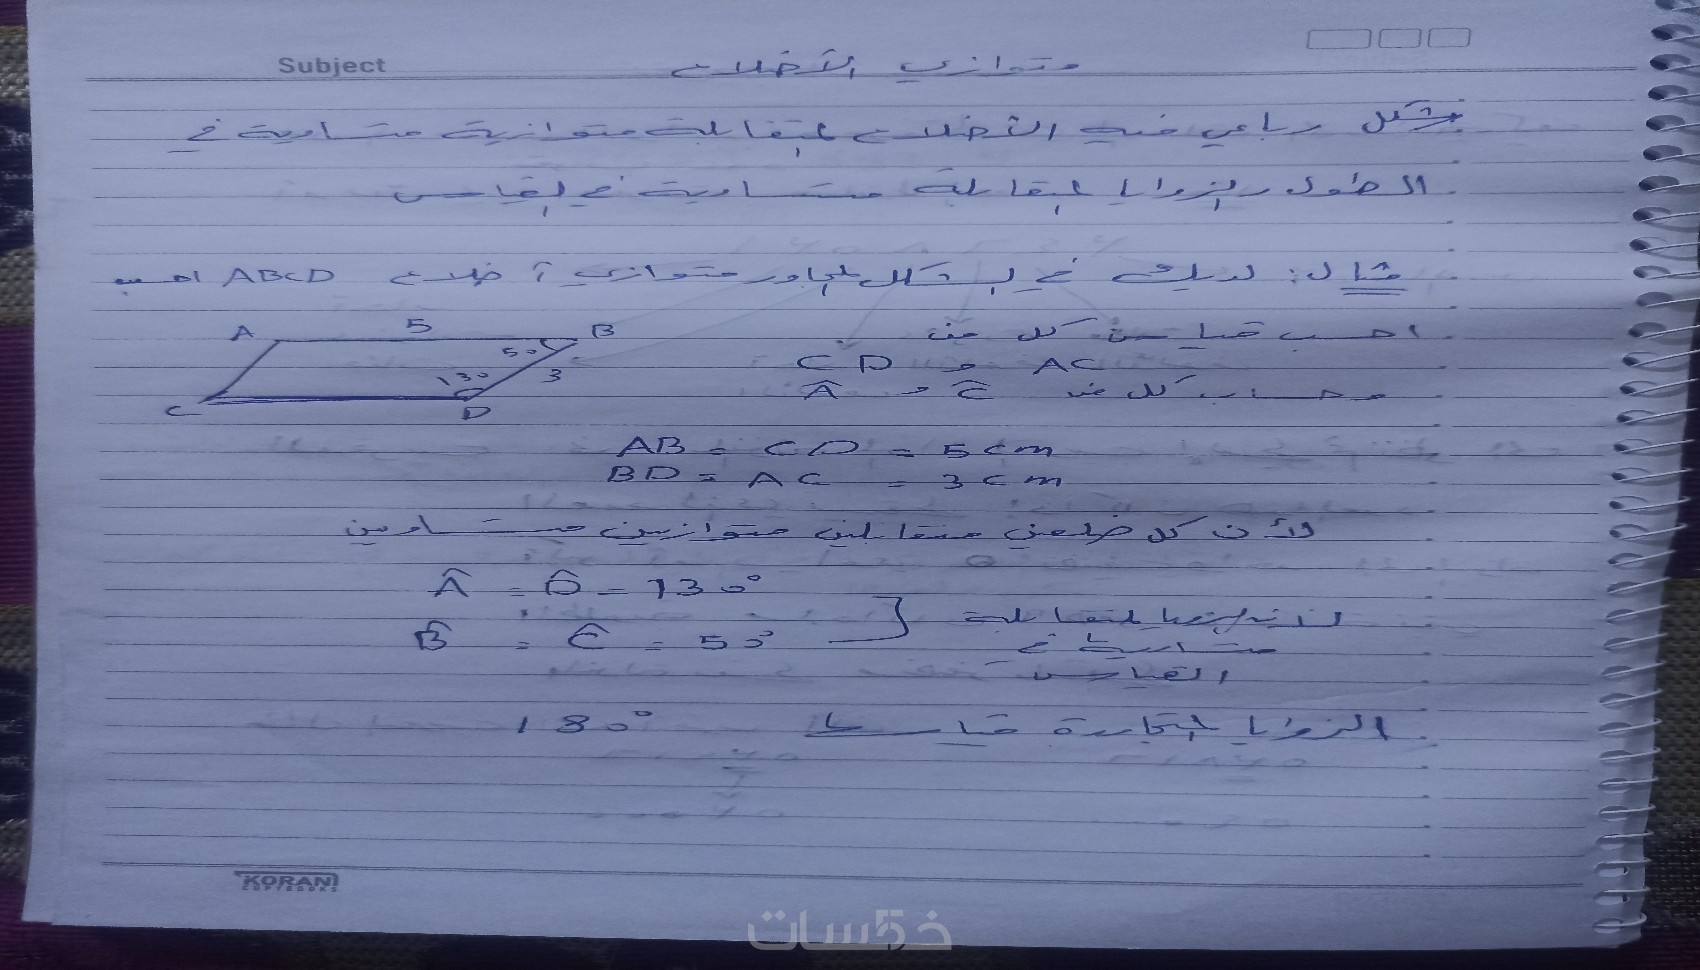 Subject
متوازي الأضلاع
شكل رباعي فيه الأضلاع المتقابلة متوازية متساوية في
الطول والزوايا المتقابلة متساوية في القياس
مثال: لديك في الشكل المجاور متوازي أضلاع ABCD احسب
احسب قياس كل من
AC و CD
وحساب كل من Ĉ و Â
A 5 B
50
130 3
C D
AB = CD = 5 cm
BD = AC = 3 cm
لأن كل ضلعين متقابلين متوازيين متساويين
Â = D̂ = 130°
B̂ = Ĉ = 50°
المتقابلة
متساوية في
القياس
الزوايا المتجاورة قياسها 180°
KORAN
COPYBOOKS
خمسات